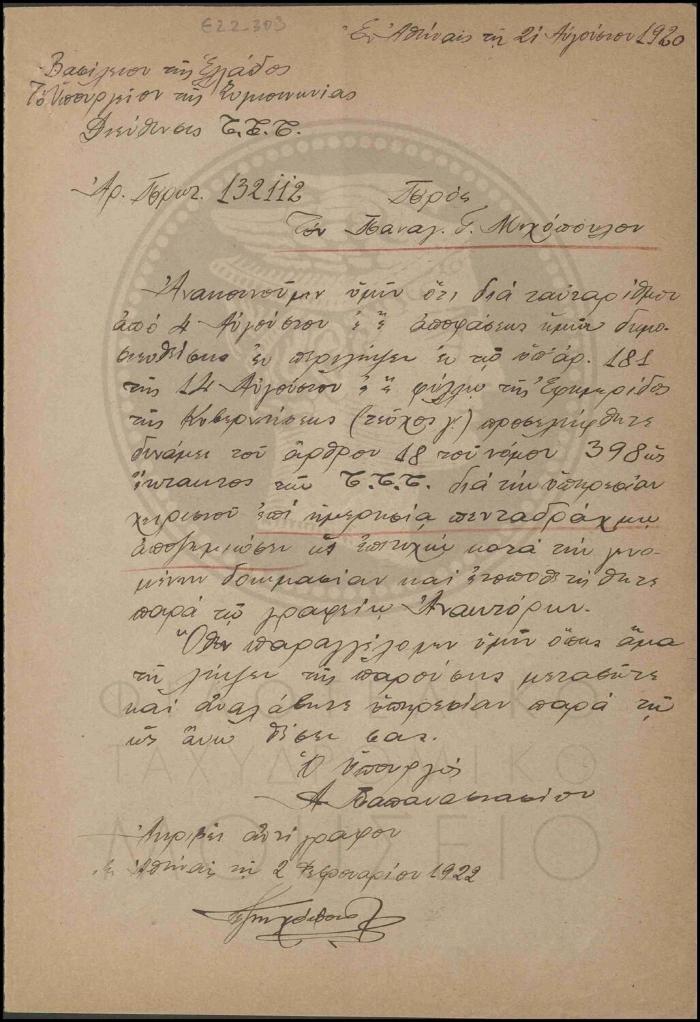 Ε22.303
Ἐν Ἀθήναις τῇ 21 Αὐγούστου 1920
Βασίλειον τῆς Ἑλλάδος
Τὸ Ὑπουργεῖον τῆς Συγκοινωνίας
Διεύθυνσις Τ.Τ.Τ.
Ἀρ. Πρωτ. 132112
Πρὸς
Τὸν Παναγ. Γ. Μιχόπουλον
Ἀνακοινοῦμεν ὑμῖν ὅτι διὰ ταὐταρίθμου
ἀπὸ 4 Αὐγούστου ἐ.ἔ. ἀποφάσεως ἡμῶν δημο-
σιευθείσης ἐν περιλήψει ἐν τῷ ὑπ' ἀρ. 181
τῆς 14 Αὐγούστου ἐ.ἔ. φύλλῳ τῆς Ἐφημερίδος
τῆς Κυβερνήσεως (τεῦχος γ') προσελήφθητε
δυνάμει τοῦ ἄρθρου 18 τοῦ νόμου 398 ὡς
ἔκτακτος τῶν Τ.Τ.Τ. διὰ τὴν ὑπηρεσίαν
χειρισμοῦ ἐπὶ ἡμερησίᾳ πενταδράχμῳ
ἀποζημιώσει ὡς ἐπιτυχὼν κατὰ τὴν γενο-
μένην δοκιμασίαν καὶ ἐτοποθετήθητε
παρὰ τῷ γραφείῳ Ἀνακτόρων.
Ὅθεν παραγγέλομεν ὑμῖν ὅπως ἅμα
τῇ λήψει τῆς παρούσης μεταβῆτε
καὶ ἀναλάβητε ὑπηρεσίαν παρὰ τῇ
ὡς ἄνω θέσει σας.
Ὁ Ὑπουργὸς
Α. Παπαναστασίου
Ἀκριβὲς ἀντίγραφον
Ἐν Ἀθήναις τῇ 2 Φεβρουαρίου 1922
ΦΙΛΟΤΕΛΙΚΟ
ΤΑΧΥΔΡΟΜΙΚΟ
ΜΟΥΣΕΙΟ